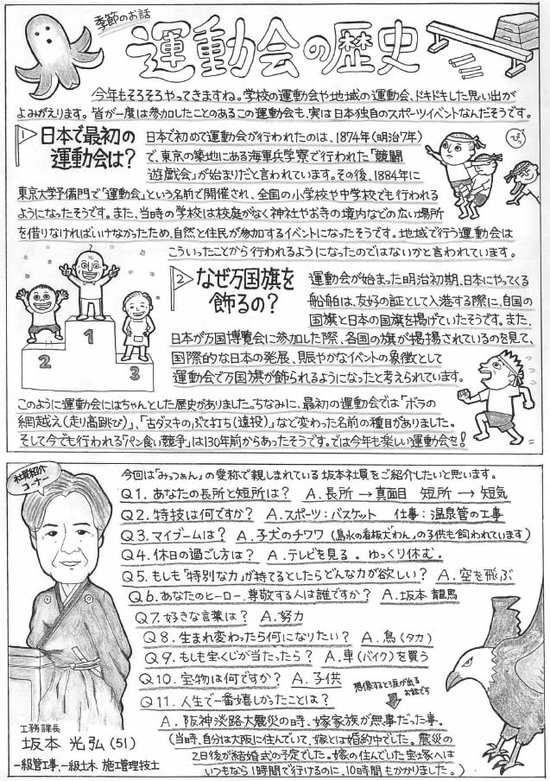 季節のお話
運動会の歴史
今年もそろそろやってきますね。学校の運動会や地域の運動会、ドキドキした思い出が
よみがえります。皆が一度は参加したことのあるこの運動会も、実は日本独自のスポーツイベントなんだそうです。
1 日本で最初の
運動会は？
日本で初めて運動会が行われたのは、1874年(明治7年)
で、東京の築地にある海軍兵学寮で行われた「競闘
遊戯会」が始まりだと言われています。その後、1884年に
東京大学予備門で「運動会」という名前で開催され、全国の小学校や中学校でも行われる
ようになったそうです。また、当時の学校は校庭がなく神社やお寺の境内などの広い場所
を借りなければいけなかったため、自然と住民が参加するイベントになったそうです。地域で行う運動会は
こういったことから行われるようになったのではないかと言われています。
2
1
3
2 なぜ万国旗を
飾るの？
運動会が始まった明治初期、日本にやってくる
船舶は、友好の証として入港する際に、自国の
国旗と日本の国旗を掲げていたそうです。また、
日本が万国博覧会に参加した際、各国の旗が掲揚されているのを見て、
国際的な日本の発展、賑やかなイベントの象徴として
運動会で万国旗が飾られるようになったと考えられています。
このように運動会にはちゃんとした歴史がありました。ちなみに、最初の運動会では「ボラの
網越え(走り高跳び)」、「古ダヌキのつぶて打ち(遠投)」など変わった名前の種目がありました。
そして今でも行われる「パン食い競争」は130年前からあったそうです。では今年も楽しい運動会を！
社員紹介
コーナー
今回は「みっつぁん」の愛称で親しまれている坂本社員をご紹介したいと思います。
Q1. あなたの長所と短所は？ A. 長所→真面目 短所→短気
Q2. 特技は何ですか？ A. スポーツ：バスケット 仕事：温泉管の工事
Q3. マイブームは？ A. 子犬のチワワ(島水の看板犬“わん”の子供も飼われています)
Q4. 休日の過ごし方は？ A. テレビを見る。ゆっくり休む。
Q5. もしも「特別な力」が持てるとしたらどんな力が欲しい？ A. 空を飛ぶ
Q6. あなたのヒーロー、尊敬する人は誰ですか？ A. 坂本 龍馬
Q7. 好きな言葉は？ A. 努力
Q8. 生まれ変わったら何になりたい？ A. 鳥(タカ)
Q9. もしも宝くじが当たったら？ A. 車(バイク)を買う
Q10. 宝物は何ですか？ A. 子供
Q11. 人生で一番嬉しかったことは？
想像すると涙が出る
お話です
A. 阪神淡路大震災の時、嫁家族が無事だった事。
(当時、自分は大阪に住んでいて、嫁とは婚約中でした。震災の
2日後が結婚式の予定でした。嫁の住んでいた宝塚へは
いつもなら1時間で行けるのに、10時間もかかりました。)
工務課長
坂本 光弘(51)
一級管工事、一級土木 施工管理技士